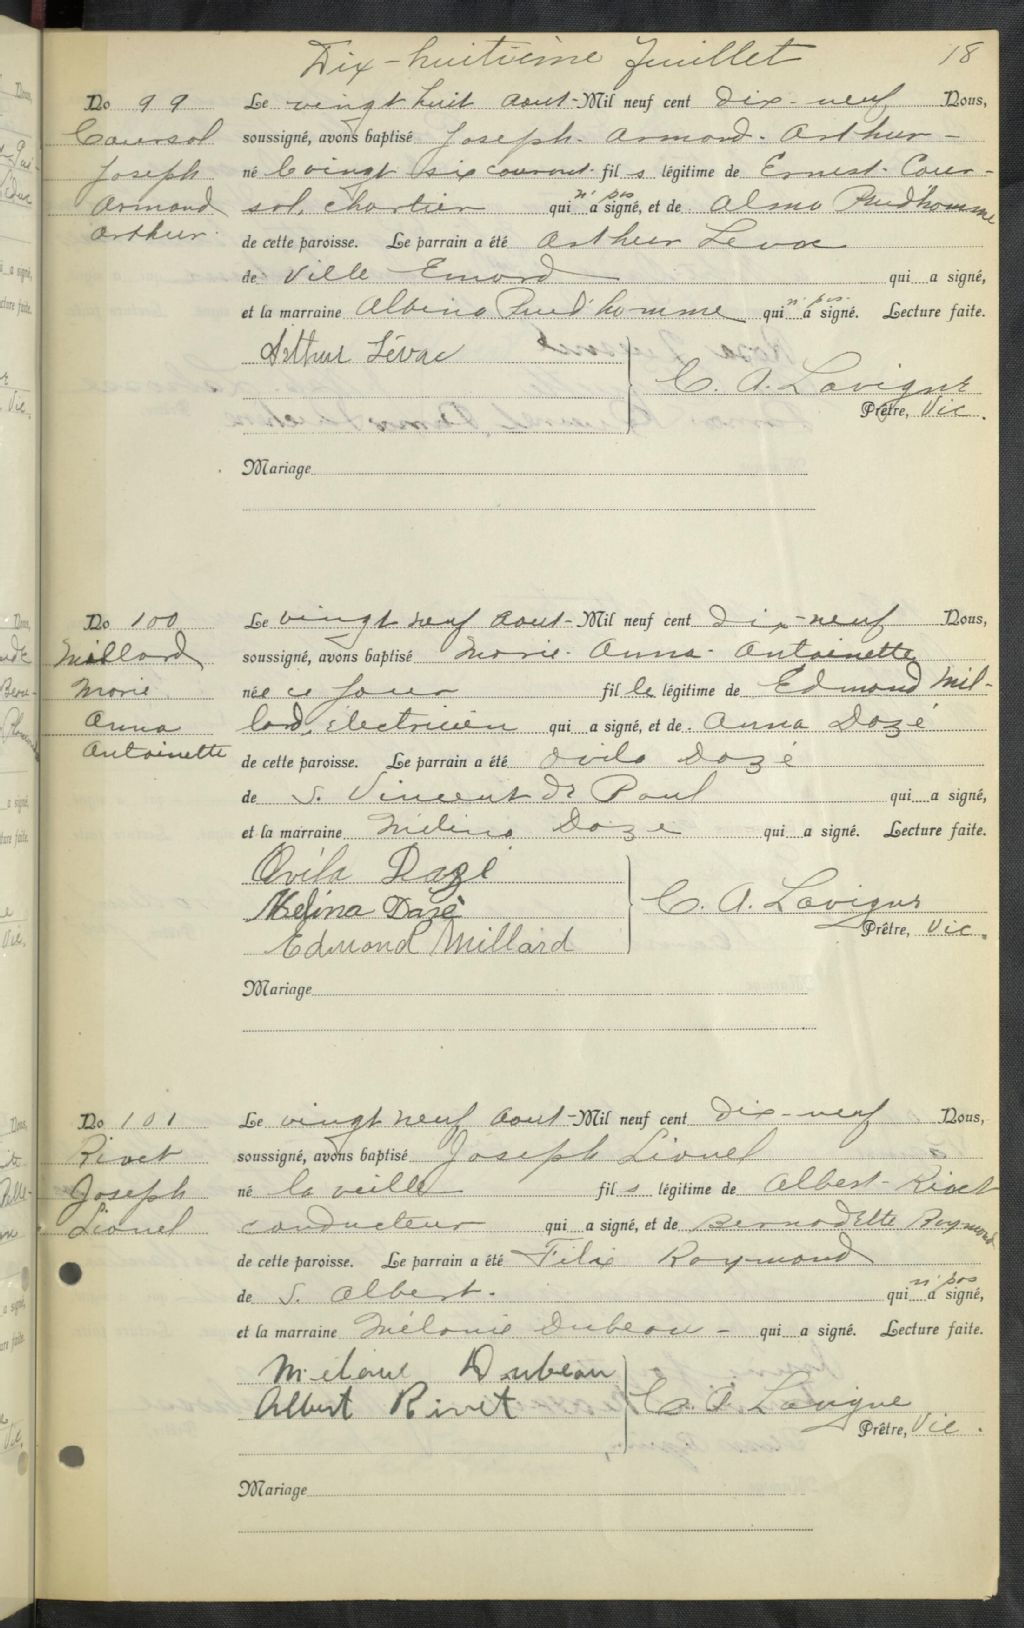 Dix-huitième feuillet 18
No 99 Le vingt huit aout - Mil neuf cent dix-neuf Nous,
Coursol soussigné, avons baptisé Joseph. Armand. Arthur -
Joseph né le vingt six courant. fils légitime de Ernest. Cour-
Armand sol, chartier qui n'a pas signé, et de Alma Prud'homme
Arthur. de cette paroisse. Le parrain a été Arthur Levac
de Ville Emard qui a signé,
et la marraine Albina Prud'homme qui n'a pas signé. Lecture faite.
Arthur Lévac
C. A. Lavigne
Prêtre, Vic.
Mariage
No 100 Le vingt neuf aout - Mil neuf cent dix-neuf Nous,
Millard soussigné, avons baptisé Marie. Anna. Antoinette
Marie née ce jour fille légitime de Edmond Mil-
Anna lard, électricien qui a signé, et de Anna Dazé
Antoinette de cette paroisse. Le parrain a été Ovila Dazé
de S. Vincent de Paul qui a signé,
et la marraine Mélina Daze qui a signé. Lecture faite.
Ovila Dazé
Melina Dazé
C. A. Lavigne
Prêtre, Vic.
Edmond Millard
Mariage
No 101 Le vingt neuf aout - Mil neuf cent dix-neuf Nous,
Rivet soussigné, avons baptisé Joseph Lionel
Joseph né la veille fils légitime de Albert - Rivet
Lionel conducteur qui a signé, et de Bernadette Raymond
de cette paroisse. Le parrain a été Félix Raymond
de S. Albert. qui n'a pas signé,
et la marraine Mélanie Dubeau - qui a signé. Lecture faite.
Mélanie Dubeau
Albert Rivet
C. A. Lavigne
Prêtre, Vic.
Mariage